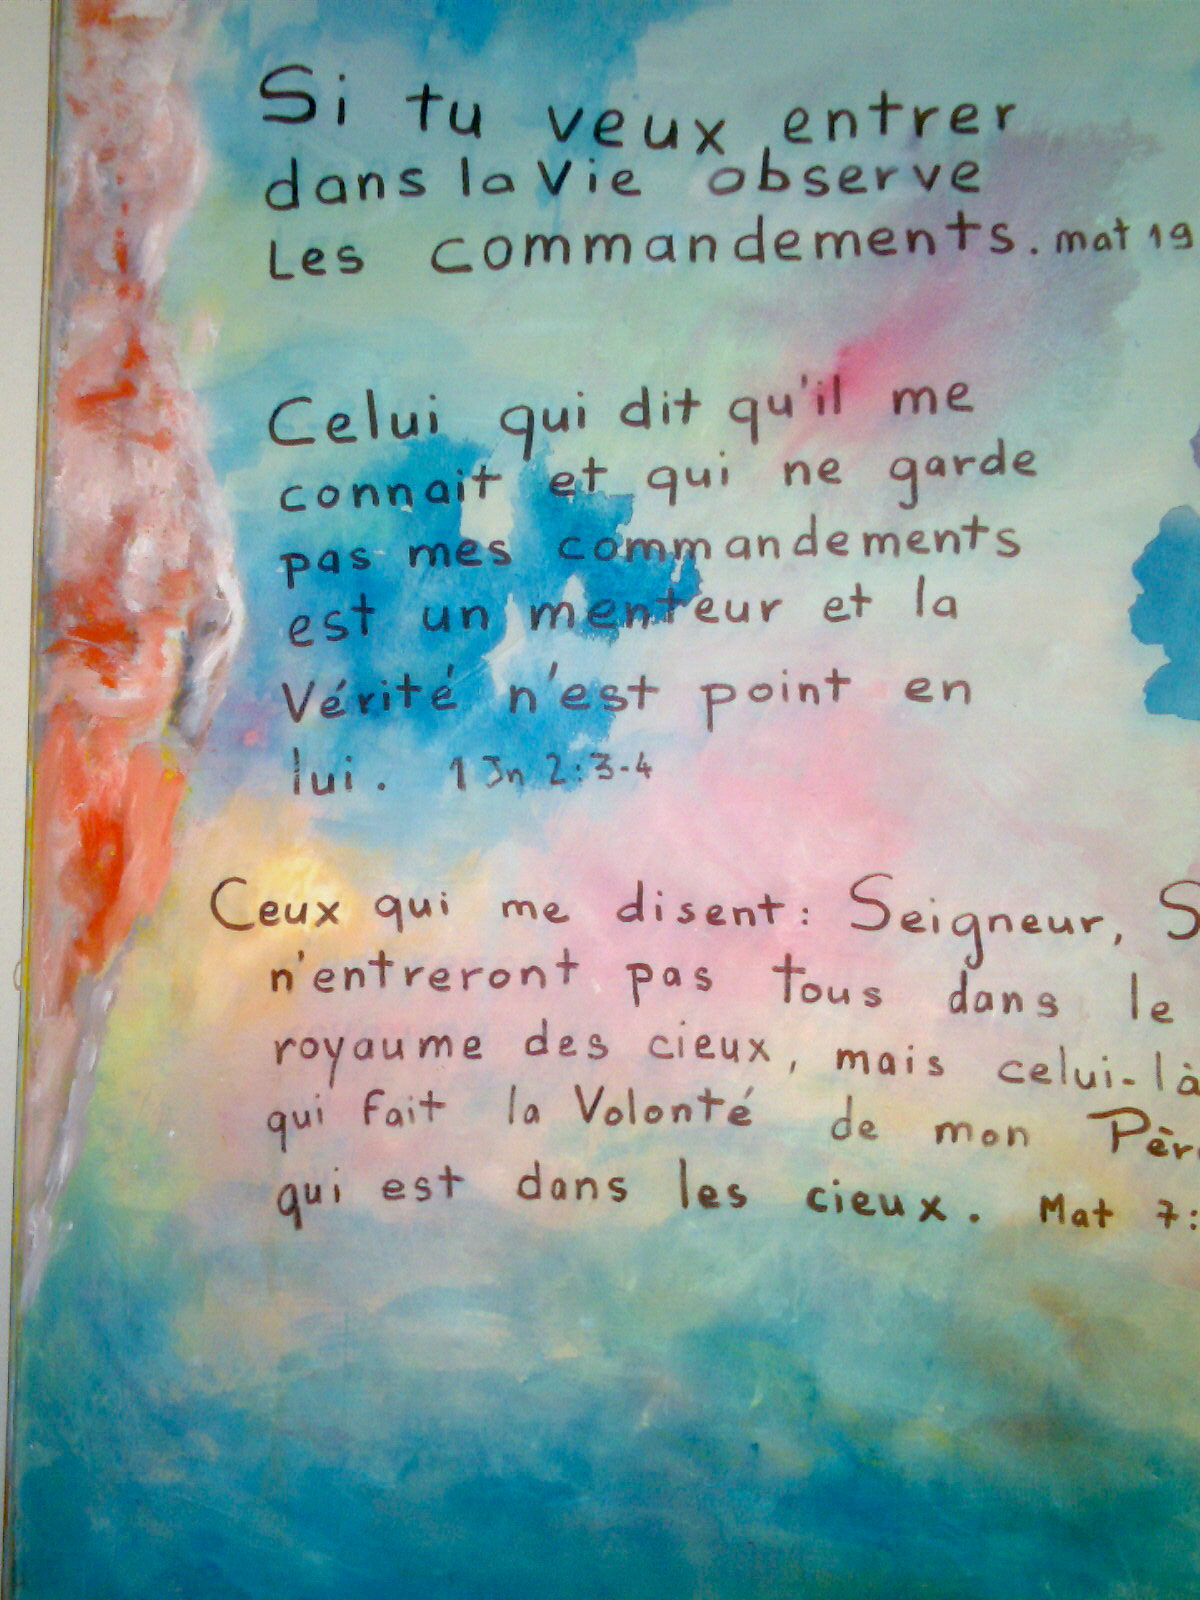 Si tu veux entrer
dans la Vie observe
Les commandements. mat 19
Celui qui dit qu'il me
connait et qui ne garde
pas mes commandements
est un menteur et la
Vérité n'est point en
lui. 1 Jn 2:3-4
Ceux qui me disent: Seigneur, S
n'entreront pas tous dans le
royaume des cieux, mais celui-là
qui fait la Volonté de mon Père
qui est dans les cieux. Mat 7: